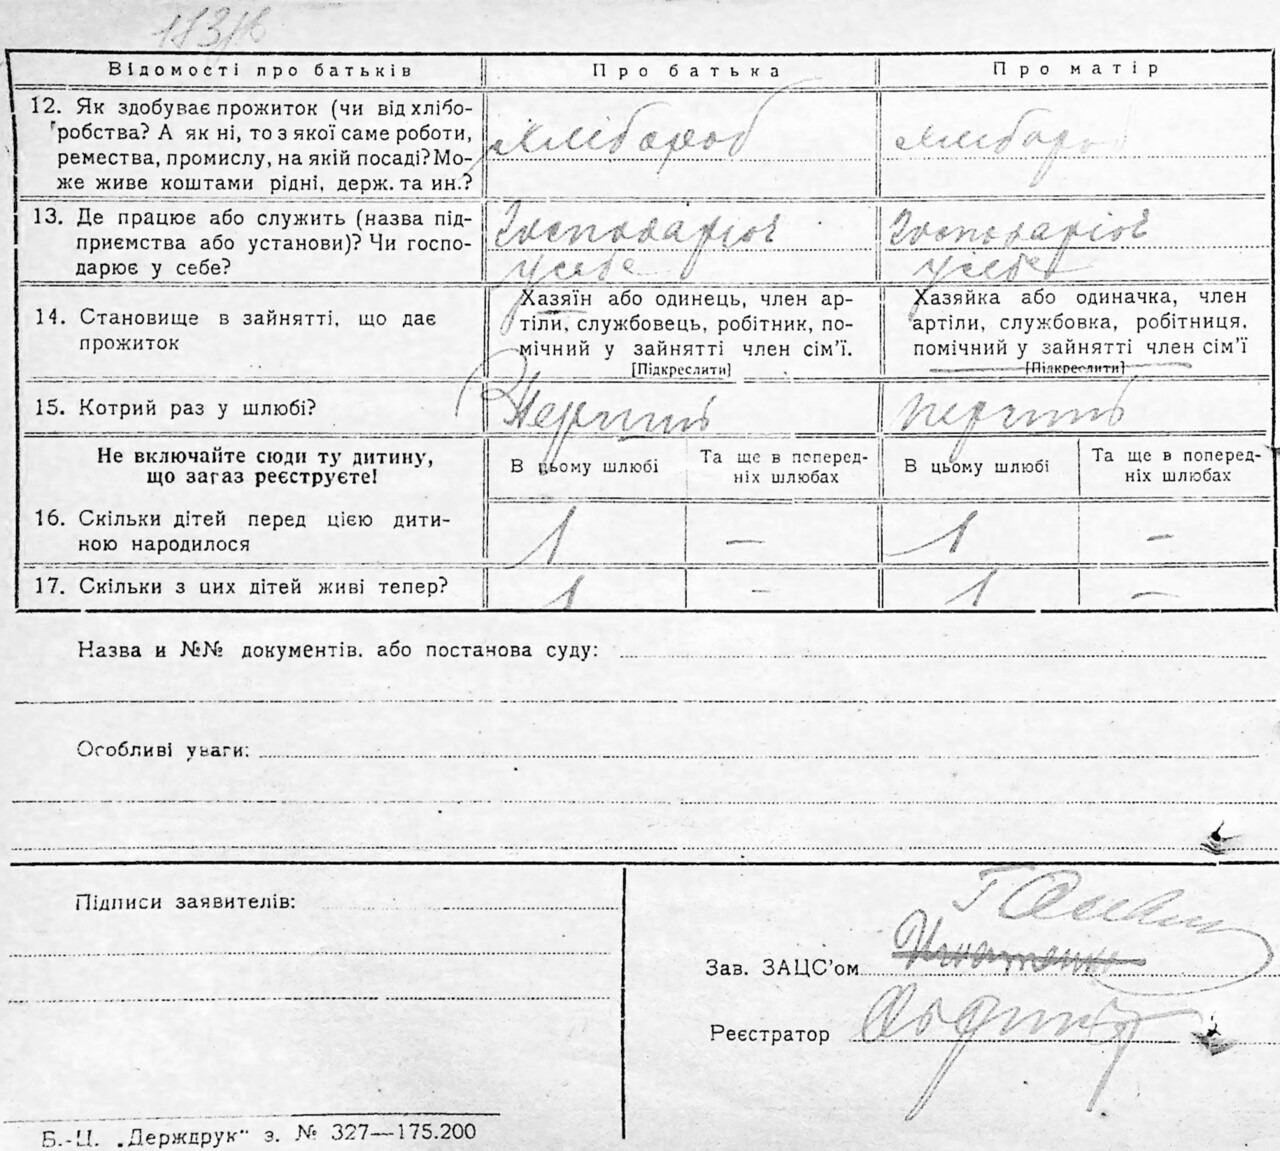 Відомості про батьків Про батька Про матір
12. Як здобуває прожиток (чи від хлібо-
робства? А як ні, то з якої саме роботи,
ремества, промислу, на якій посаді? Мо-
же живе коштами рідні, держ. та ин.?
Хлібороб Хлібороб
13. Де працює або служить (назва під-
приємства або установи)? Чи госпо-
дарює у себе?
Господарює Господарює
у себе у себе
14. Становище в зайнятті, що дає
прожиток
Хазяїн або одинець, член ар-
тіли, службовець, робітник, по-
мічний у зайнятті член сім'ї.
[Підкреслити]
Хазяйка або одиначка, член
артіли, службовка, робітниця,
помічний у зайнятті член сім'ї
[Підкреслити]
15. Котрий раз у шлюбі?
Перший перший
Не включайте сюди ту дитину,
що загаз реєструєте!
В цьому шлюбі
Та ще в поперед-
ніх шлюбах
В цьому шлюбі
Та ще в поперед-
ніх шлюбах
16. Скільки дітей перед цією дити-
ною народилося
1 — 1 —
17. Скільки з цих дітей живі тепер? 1 — 1 —
Назва и №№ документів. або постанова суду:
Особливі уваги:
Підписи заявителів:
Зав. ЗАЦС'ом
Реєстратор
Б.-Ц. „Держдрук" з. № 327—175.200